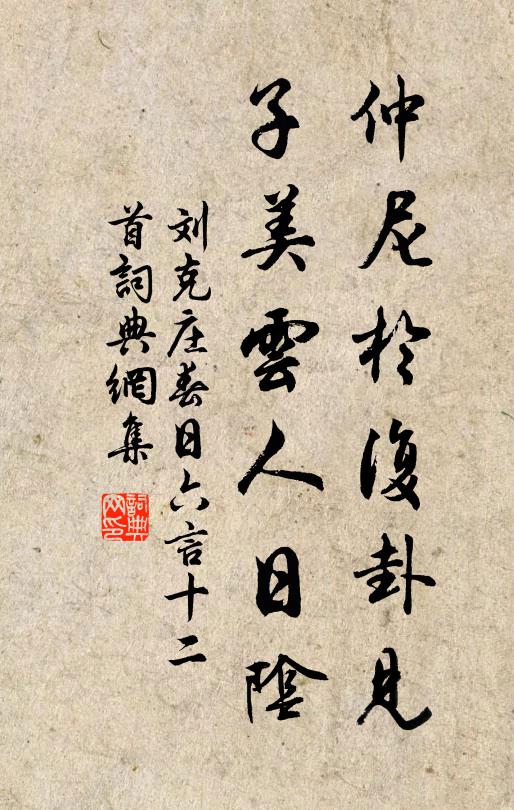 仲尼於復卦見
子美雲人日陰
刘克庄春日六言十二
首詞典網集
詞典
网印